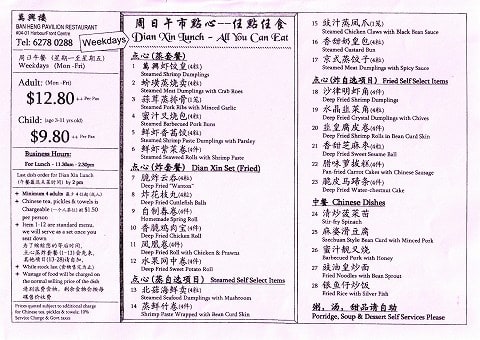 萬興樓
BAN HENG PAVILION RESTAURANT
#04-01 HarbourFront Centre
Tel: 6278 0288
Weekdays
周日午餐 (星期一至星期五)
Weekdays (Mon - Fri)
Adult: (Mon - Fri)
$12.80 ++ Per Pax
Child: (age 3-11 yrs old)
$9.80 ++ Per Pax
Business Hours:
For Lunch - 11.30am - 2.30pm
Last dish order for Dian Xin Lunch
by 2 pm
Minimum 4 adults
Chinese tea, pickles & towels is
Chargeable at $1.50
per person
Item 1-12 are standard menu,
we will serve as a set once you
seat down
While stock last
Wastage of food will be charged on
the normal selling price of the dish
Prices quoted subject to additional charge
for Chinese tea, pickles & towels, 10%
Service Charge & Govt taxes
周日午市點心--任點任食
Dian Xin Lunch - All You Can Eat
点心(蒸套餐)
1 萬興虾饺皇(4粒)
Steamed Shrimp Dumplings
2 蟳璜蒸烧卖(4粒)
Steamed Meat Dumplings with Crab Roes
3 蒜茸蒸排骨(1笼)
Steamed Pork Ribs with Minced Garlic
4 蜜汁叉烧包(4粒)
Steamed Barbecued Pork Buns
5 鲜虾香茜饺(4粒)
Steamed Shrimp Paste Dumplings with Parsley
6 鲜虾紫菜卷(4件)
Steamed Seaweed Rolls with Shrimp Paste
点心(炸套餐) Dian Xin Set (Fried)
7 脆炸云吞(4粒)
Deep Fried "Wanton"
8 炸花枝丸(4粒)
Deep Fried Cuttlefish Balls
9 自制春卷(4件)
Homemade Spring Roll
10 香脆鸡肉宝(4件)
Deep Fried Chicken Roll
11 凤凰卷(4件)
Deep Fried Roll with Chicken & Prawns
12 水蓬润中卷(4件)
Deep Fried Sweet Potato Roll
点心(蒸自选项目) Steamed Self Select Items
13 北菇海鲜卖(4粒)
Steamed Seafood Dumplings with Mushroom
14 蒸鲜竹卷(4件)
Shrimp Paste Wrapped with Bean Curd Skin
15 豉汁蒸凤爪(1笼)
Steamed Chicken Claws with Black Bean Sauce
16 香甜奶皇包(4粒)
Steamed Custard Bun
17 京式蒸饺子(4粒)
Steamed Meat Dumplings with Spicy Sauce
点心(炸自选项目) Fried Self Select Items
18 沙律明虾角(4件)
Deep Fried Shrimp Dumplings
19 水晶韭菜角(4件)
Deep Fried Crystal Dumplings with Chives
20 韭皇腐皮卷(4件)
Deep Fried Shrimp Rolls in Bean Curd Skin
21 香甜芝麻枣(4粒)
Deep Fried Sweet Sesame Ball
22 腊味萝拔糕(4件)
Pan-fried Carrot Cakes with Chinese Sausage
23 脆皮马蹄条(4件)
Deep Fried Water-chestnut Cake
中餐 Chinese Dishes
24 清炒菠菜苗
Stir-fry Spinach
25 麻婆滑豆腐
Szechuan Style Bean Curd with Minced Pork
26 蜜汁靓叉烧
Barbecued Pork with Honey
27 豉油皇炒面
Fried Noodles with Bean Sprout
28 银鱼仔炒饭
Fried Rice with Silver Fish
粥, 汤, 甜品请自助
Porridge, Soup & Dessert Self Services Please